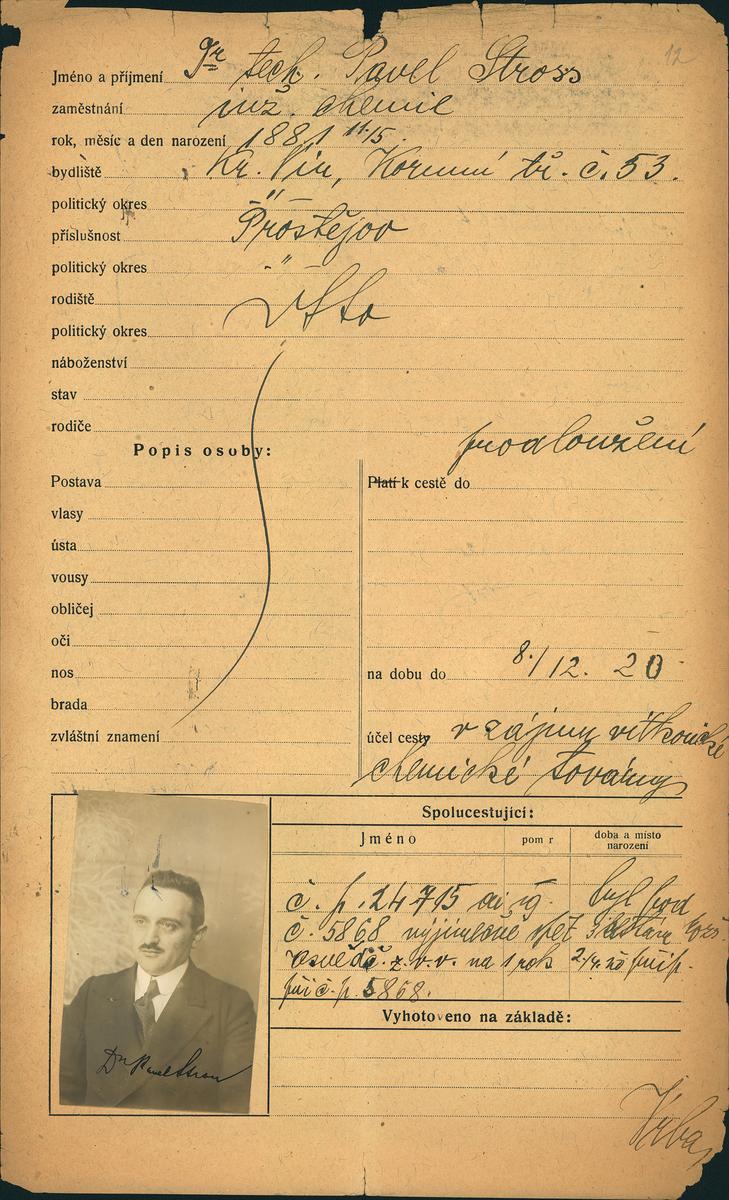 12
Jméno a příjmení Dr tech. Pavel Stross
zaměstnání inž. chemie
rok, měsíc a den narození 1881 11/5.
bydliště Kr. Vin, Korunní tř. č. 53.
politický okres — " —
příslušnost Prostějov
politický okres - " -
rodiště
politický okres
náboženství
stav
rodiče
Popis osoby:
prodloužení
Postava
Platí k cestě do
vlasy
ústa
vousy
obličej
oči
nos
na dobu do 8./12. 20
brada
zvláštní znamení
účel cesty v zájmu vítkovické
chemické továrny
Spolucestující:
Jméno pom r doba a místo
narození
č. p. 24715 byl pod
č. 5868 výjimečně
osvědč. z. v. v. na 1 rok
při č. p. 5868.
Vyhotoveno na základě:
Dr Pavel Stross
Vrba